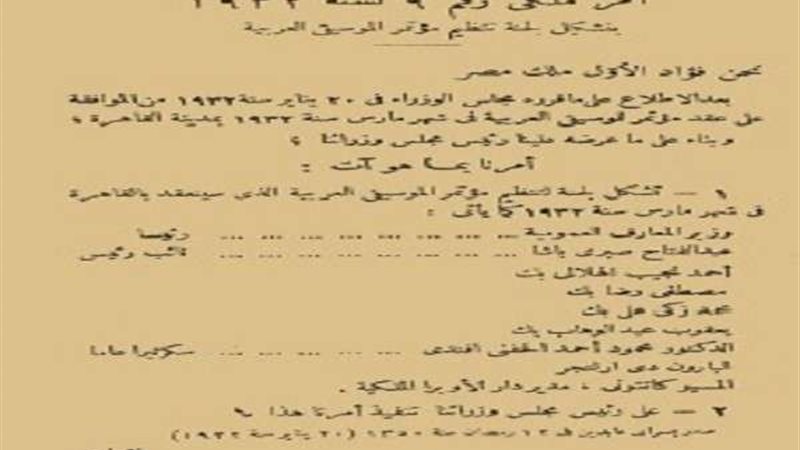 أمر ملكى رقم ٩ لسنة ١٩٣٢
بتشكيل لجنة تنظيم مؤتمر الموسيقى العربية
نحن فؤاد الأول ملك مصر
بعد الاطلاع على ما قرره مجلس الوزراء فى ٢٠ يناير سنة ١٩٣٢ من الموافقة
على عقد مؤتمر للموسيقى العربية فى شهر مارس سنة ١٩٣٢ بمدينة القاهرة ؛
وبناء على ما عرضه علينا رئيس مجلس وزرائنا ؛
أمرنا بما هو آت :
١ — تشكل لجنة لتنظيم مؤتمر الموسيقى العربية الذى سينعقد بالقاهرة
فى شهر مارس سنة ١٩٣٢ كما يأتى :
وزير المعارف العمومية ... ... ... ... ... ... ... رئيسا
عبد الفتاح صبرى باشا ... ... ... ... ... ... ... نائب رئيس
أحمد نجيب الهلالى بك
مصطفى رضا بك
محمد زكى على بك
يعقوب عبد الوهاب بك
الدكتور محمود أحمد الحفنى أفندى ... ... ... ... سكرتيرا عاما
البارون دى ارلنجر
المسيو كانتونى ، مدير دار الأوبرا الملكية .
٢ — على رئيس مجلس وزرائنا تنفيذ أمرنا هذا ؟
صدر بسراى عابدين فى ١٢ رمضان سنة ١٣٥٠ (٢٠ يناير سنة ١٩٣٢)